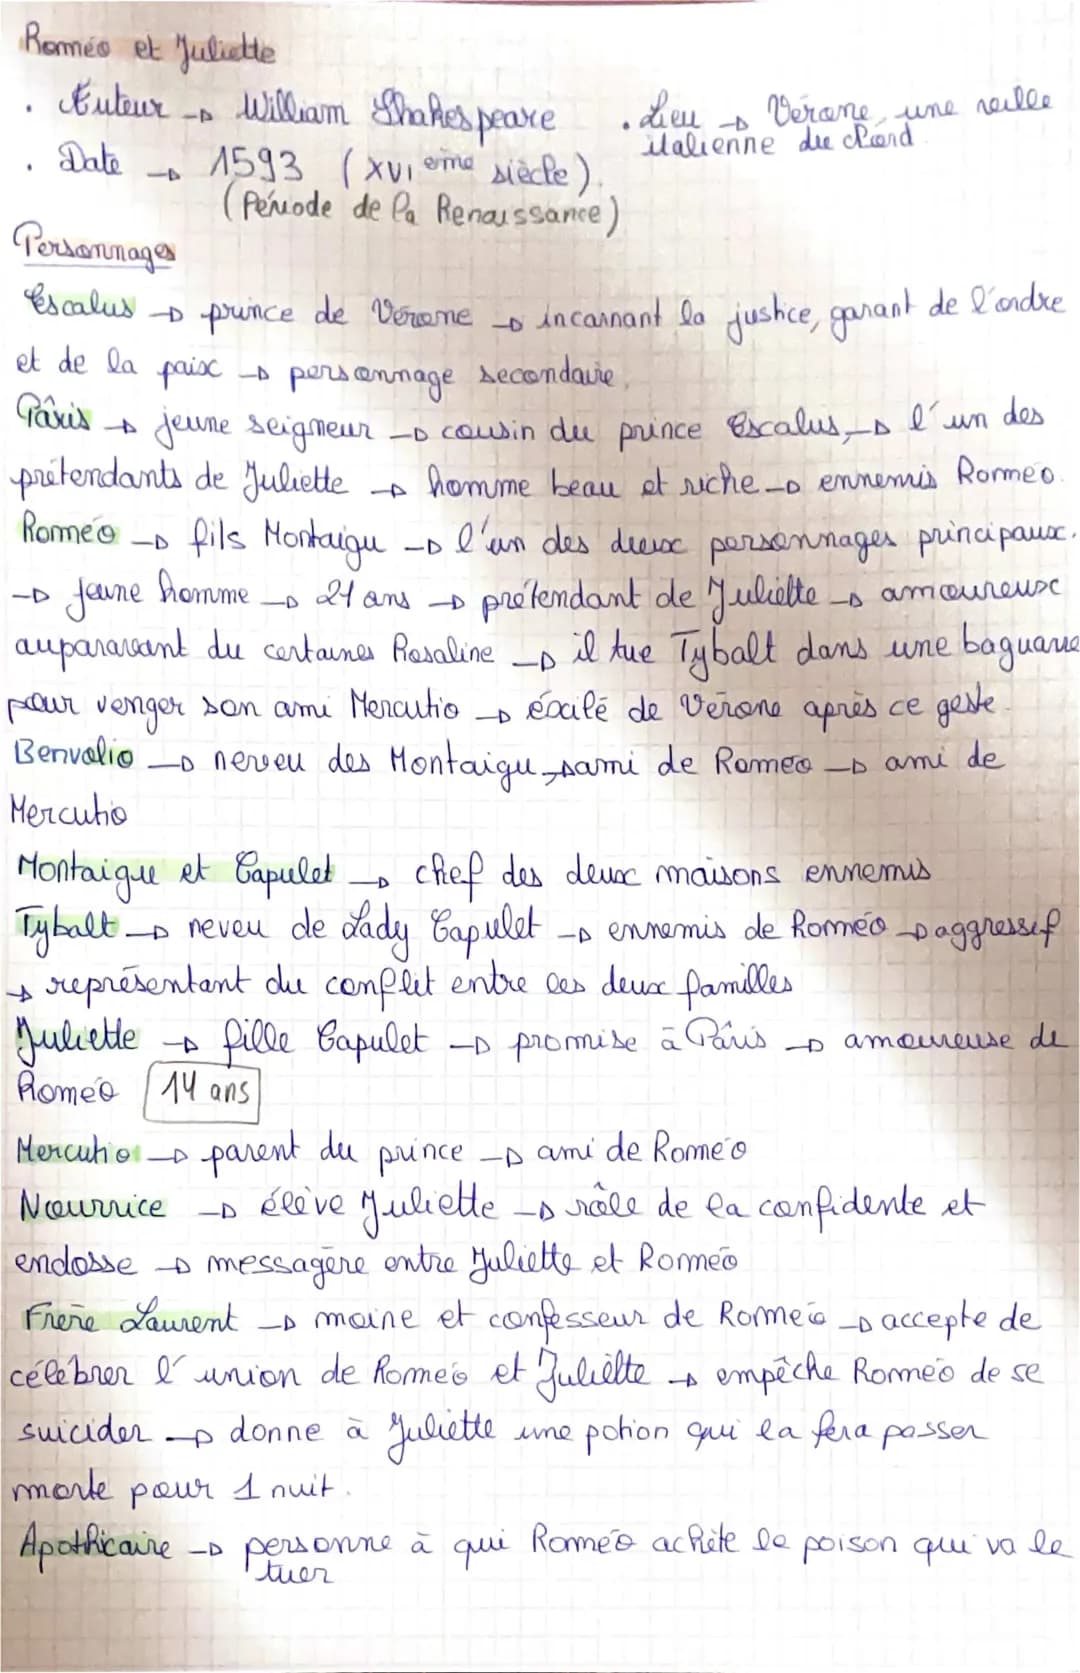 Roméo et Juliette
• Auteur → William Shakespeare
• Date → 1593 (XVI eme siècle).
(Période de la Renaissance)
• Lieu → Vérone, une ville
italienne du Nord
Personnages
Escalus → prince de Vérone → incarnant la justice, garant de l'ordre
et de la paix → personnage secondaire.
Pâris → jeune seigneur → cousin du prince Escalus, → l'un des
prétendants de Juliette → homme beau et riche → ennemis Roméo.
Roméo → fils Montaigu → l'un des deux personnages principaux.
→ jeune homme → 21 ans → prétendant de Juliette → amoureux
auparavant du certaines Rosaline → il tue Tybalt dans une baguarre
pour venger son ami Mercutio → éxilé de Vérone après ce geste.
Benvolio → neveu des Montaigu → ami de Roméo → ami de
Mercutio
Montaigue et Capulet → chef des deux maisons ennemis
Tybalt → neveu de Lady Capulet → ennemis de Roméo → aggressif
→ représentant du conflit entre les deux familles
Juliette → fille Capulet → promise à Pâris → amoureuse de
Roméo 14 ans
Mercutio → parent du prince → ami de Roméo
Nourrice → élève Juliette → rôle de la confidente et
endosse → messagère entre Juliette et Roméo
Frère Laurent → moine et confesseur de Roméo → accepte de
célébrer l'union de Roméo et Juliette → empêche Roméo de se
suicider → donne à Juliette une potion qui la fera passer
morte pour 1 nuit.
Apothicaire → personne à qui Roméo achète le poison qui va le
tuer